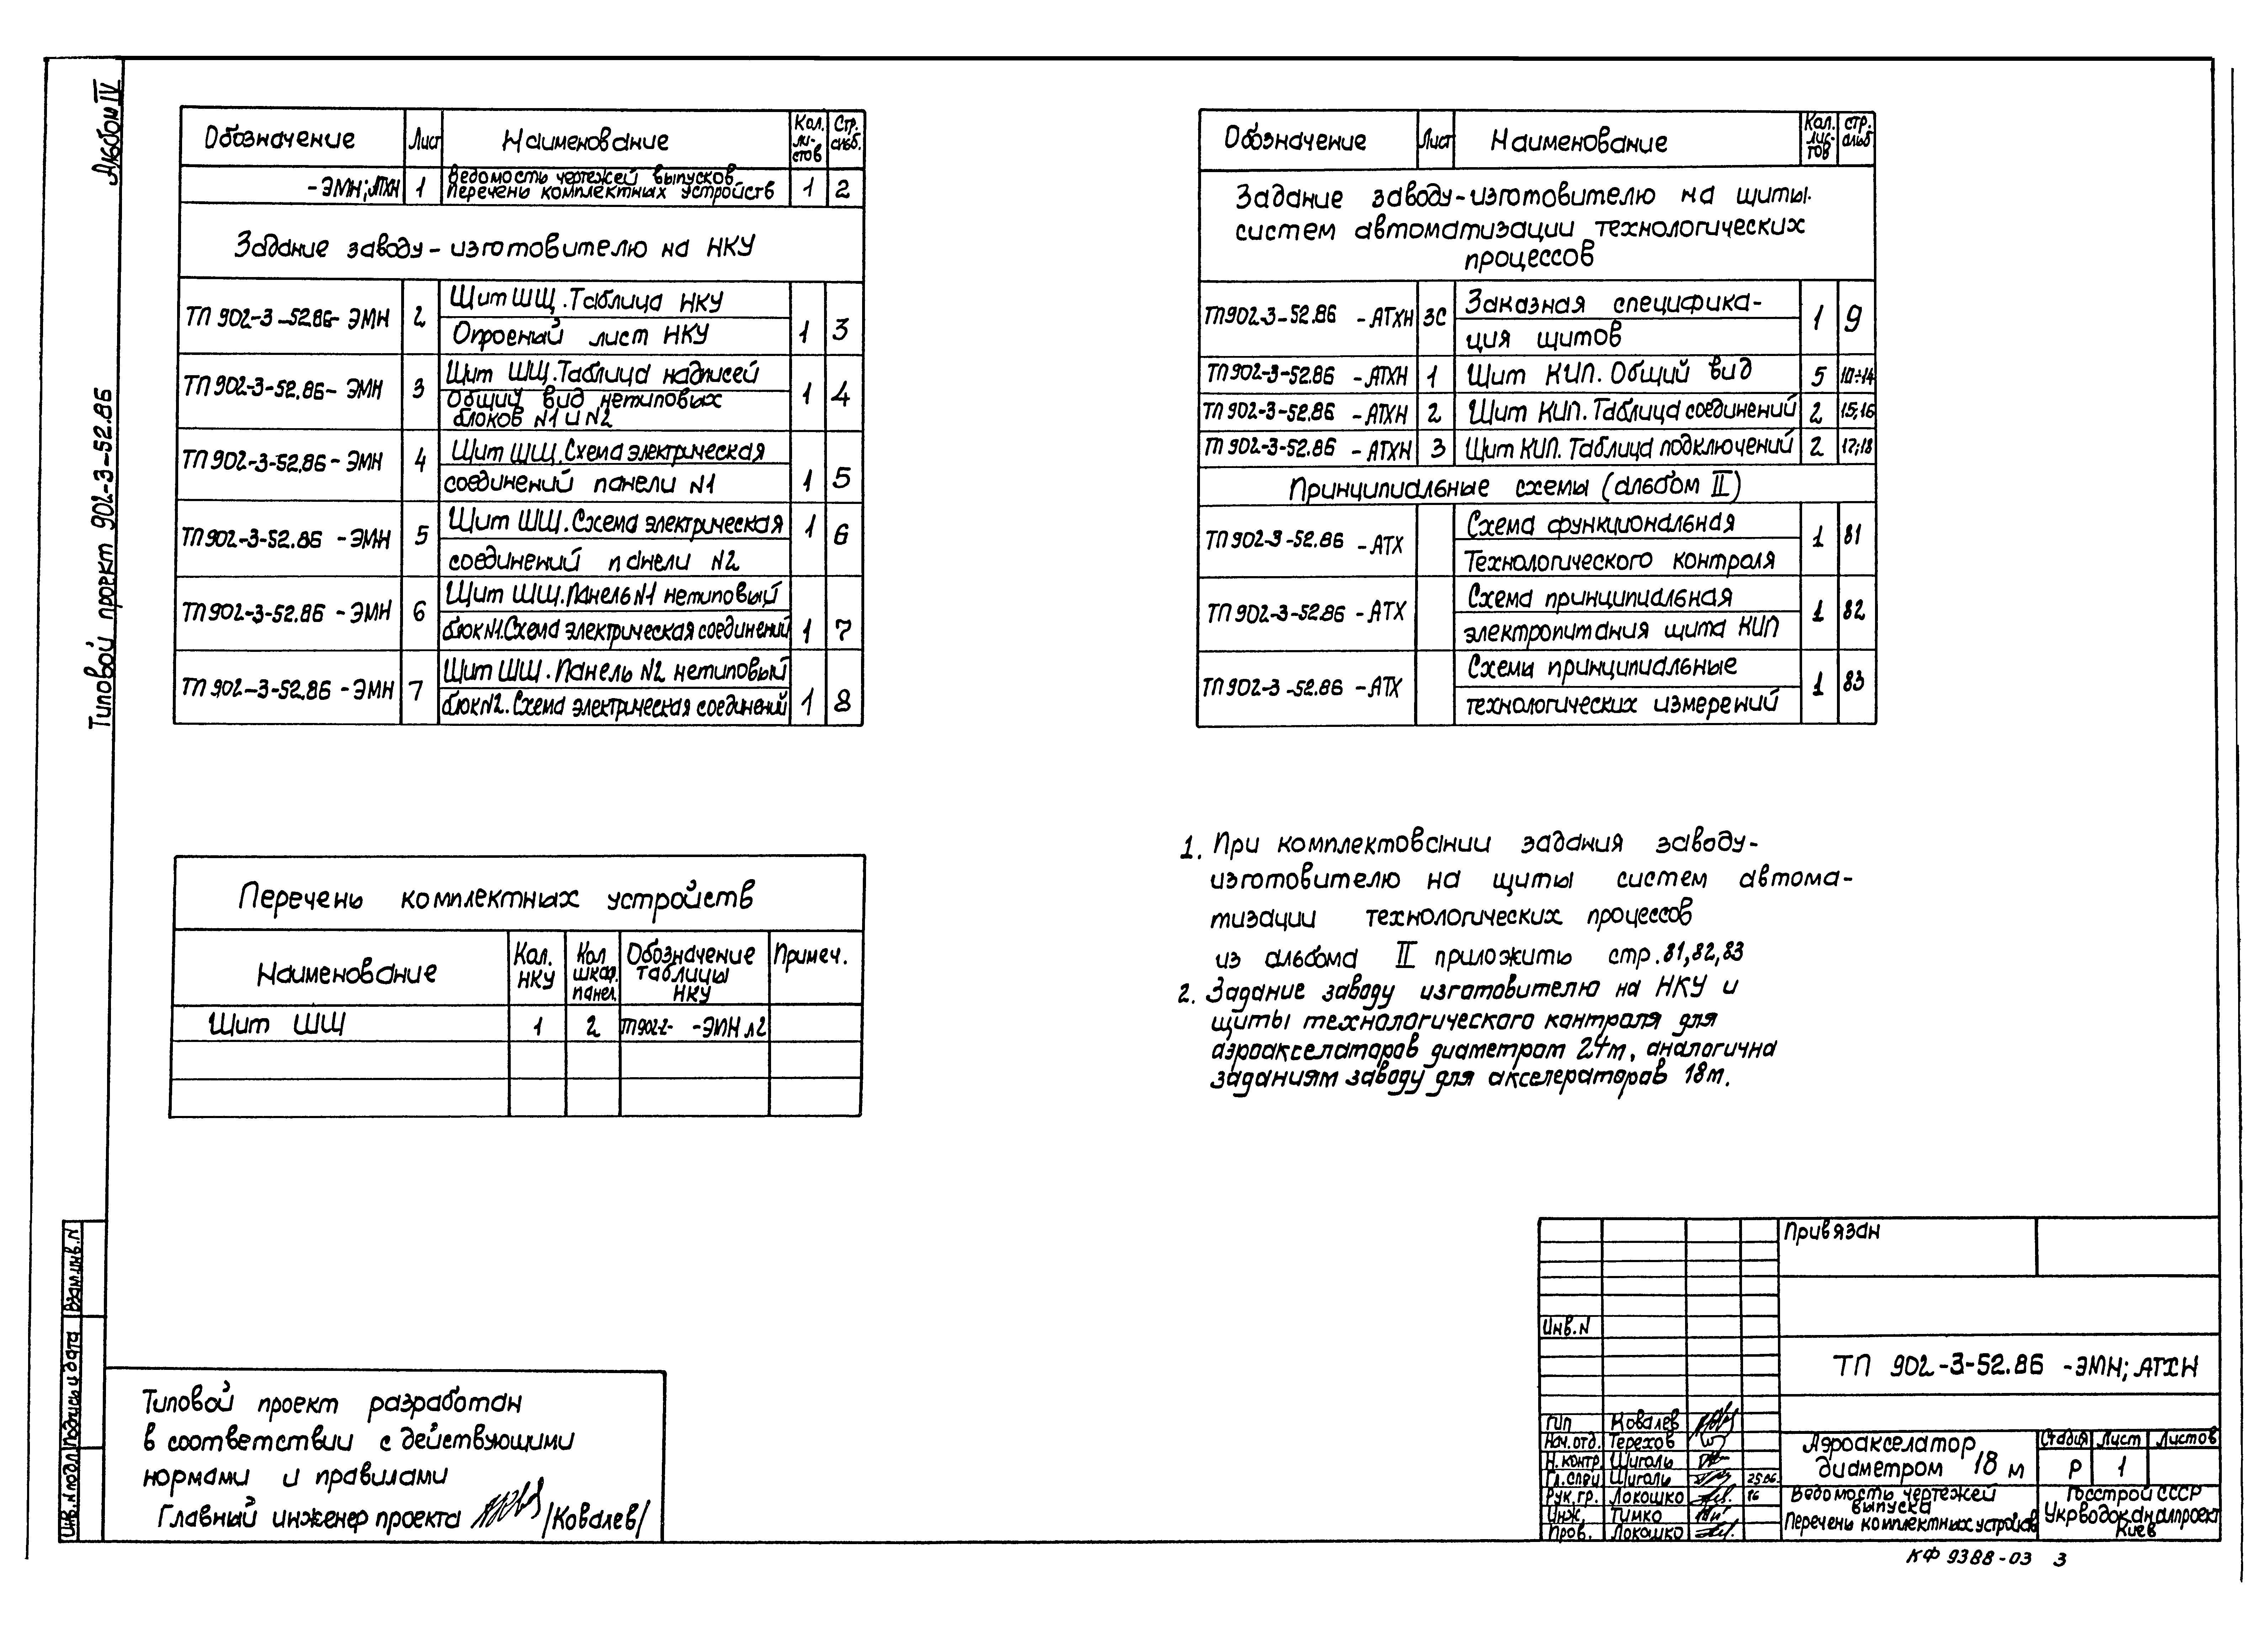 Альбом IV
Типовой проект 902-3-52.86
Обозначение Лист Наименование Кол. ли-стов Стр. альб.
-ЭМН; АТХН 1 Ведомость чертежей выпусков Перечень комплектных устройств 1 2
Задание заводу-изготовителю на НКУ
ТП 902-3-52.86- ЭМН 2 Щит ШЩ. Таблица НКУ
Опросный лист НКУ 1 3
ТП 902-3-52.86- ЭМН 3 Щит ШЩ. Таблица надписей
Общий вид нетиповых блоков N1 и N2 1 4
ТП 902-3-52.86- ЭМН 4 Щит ШЩ. Схема электрическая
соединений панели N1 1 5
ТП 902-3-52.86 - ЭМН 5 Щит ШЩ. Схема электрическая 1 6
соединений панели N2
ТП 902-3-52.86 - ЭМН 6 Щит ШЩ. Панель N1 нетиповый
блок N1. Схема электрическая соединений 1 7
ТП 902-3-52.86 - ЭМН 7 Щит ШЩ. Панель N2 нетиповый
блок N2. Схема электрическая соединений 1 8
Перечень комплектных устройств
Наименование Кол. НКУ Кол шкаф. панел. Обозначение таблицы НКУ Примеч.
Щит ШЩ 1 2 ТП902-2- -ЭМН л2
Обозначение Лист Наименование Кол. лис-тов стр. альб
Задание заводу-изготовителю на щиты.
систем автоматизации технологических
процессов
ТП902-3-52.86 - АТХН 3С Заказная специфика- 1 9
ция щитов
ТП902-3-52.86 - АТХН 1 Щит КИП. Общий вид 5 10÷14
ТП902-3-52.86 - АТХН 2 Щит КИП. Таблица соединений 2 15;16
ТП 902-3-52.86 - АТХН 3 Щит КИП. Таблица подключений 2 17;18
Принципиальные схемы (альбом II)
ТП 902-3-52.86 - АТХ Схема функциональная 1 81
Технологического контроля
ТП 902-3-52.86 - АТХ Схема принципиальная 1 82
электропитания щита КИП
ТП 902-3-52.86 - АТХ Схемы принципиальные 1 83
технологических измерений
1. При комплектовании задания заводу-
изготовителю на щиты систем автома-
тизации технологических процессов
из альбома II приложить стр. 81,82,83
2. Задание заводу изготовителю на НКУ и
щиты технологического контроля для
аэроакселаторов диаметром 24м, аналогична
заданиям заводу для акселераторов 18м.
Инв.N подл Подпись и дата Взам.инв.N
Типовой проект разработан
в соответствии с действующими
нормами и правилами
Главный инженер проекта /Ковалев/
Привязан
Инв.N
ТП 902-3-52.86 -ЭМН; АТХН
ГИП Ковалев
Нач.отд. Терехов
Н.контр. Шигаль
Гл.спец Шигаль 25.06.
Рук.гр. Локошко 86
Инж. Тимко
Пров. Локошко
Аэроакселатор
диаметром 18 м
Стадия Лист Листов
Р 1
Ведомость чертежей
выпуска
Перечень комплектных устройств
Госстрой СССР
Укрводоканалпроект
Киев
КФ 9388-03 3